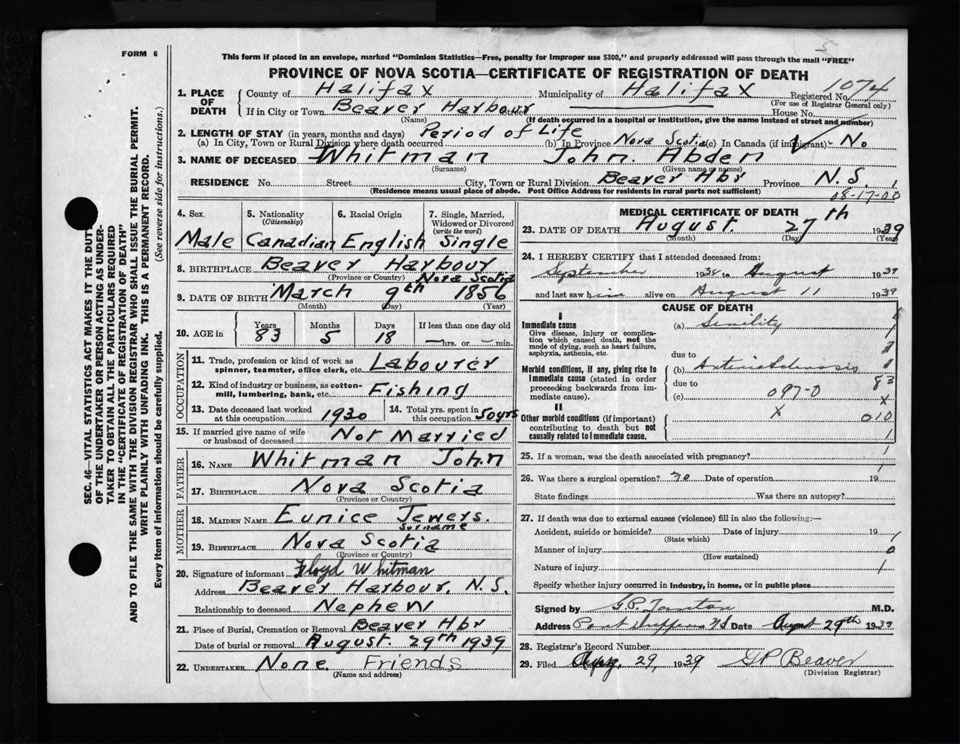 FORM 6
This form if placed in an envelope, marked "Dominion Statistics—Free, penalty for improper use $300," and properly addressed will pass through the mail "FREE"
PROVINCE OF NOVA SCOTIA—CERTIFICATE OF REGISTRATION OF DEATH
1074
1. PLACE OF DEATH County of Halifax Municipality of Halifax Registered No.
(For use of Registrar General only)
If in City or Town Beaver Harbour Street House No.
(Name) (If death occurred in a hospital or institution, give the name instead of street and number)
2. LENGTH OF STAY (in years, months and days) Period of Life
(a) In City, Town or Rural Division where death occurred (b) In Province Nova Scotia (c) In Canada (if immigrant) No
3. NAME OF DECEASED Whitman John Abden
(Surname) (Given name or names)
RESIDENCE No. Street City, Town or Rural Division Beaver Hbr Province N.S.
(Residence means usual place of abode. Post Office Address for residents in rural parts not sufficient)
08-17-00
SEC. 46—VITAL STATISTICS ACT MAKES IT THE DUTY
OF THE UNDERTAKER OR PERSON ACTING AS UNDER-
TAKER TO OBTAIN ALL THE PARTICULARS REQUIRED
IN THE "CERTIFICATE OF REGISTRATION OF DEATH"
AND TO FILE THE SAME WITH THE DIVISION REGISTRAR WHO SHALL ISSUE THE BURIAL PERMIT.
WRITE PLAINLY WITH UNFADING INK. THIS IS A PERMANENT RECORD.
Every item of information should be carefully supplied. (See reverse side for instructions.)
4. Sex 5. Nationality (Citizenship) 6. Racial Origin 7. Single, Married, Widowed or Divorced (write the word)
Male Canadian English Single
8. BIRTHPLACE Beaver Harbour
(Province or Country) Nova Scotia
9. DATE OF BIRTH March 9th 1856
(Month) (Day) (Year)
10. AGE in Years Months Days If less than one day old
83 5 18 hrs. or min.
OCCUPATION
11. Trade, profession or kind of work as spinner, teamster, office clerk, etc. Labourer
12. Kind of industry or business, as cotton-mill, lumbering, bank, etc. Fishing
13. Date deceased last worked at this occupation 1930 14. Total yrs. spent in this occupation 50yrs
15. If married give name of wife or husband of deceased Not Married
FATHER
16. NAME Whitman John
17. BIRTHPLACE Nova Scotia
(Province or Country)
MOTHER
18. MAIDEN NAME Eunice Jewers.
Surname
19. BIRTHPLACE Nova Scotia
(Province or Country)
20. Signature of informant Floyd Whitman
Address Beaver Harbour, N.S.
Relationship to deceased Nephew
21. Place of Burial, Cremation or Removal Beaver Hbr
Date of burial or removal August. 29th 1939
22. UNDERTAKER None. Friends
(Name and address)
MEDICAL CERTIFICATE OF DEATH
23. DATE OF DEATH August 27th 1939
(Month) (Day) (Year)
24. I HEREBY CERTIFY that I attended deceased from:
September 193 to August 1939
and last saw him alive on August 11 1939
CAUSE OF DEATH
I
Immediate cause (a) Senility
Give disease, injury or complication which caused death, not the mode of dying, such as heart failure, asphyxia, asthenia, etc.
due to
Morbid conditions, if any, giving rise to immediate cause (stated in order proceeding backwards from immediate cause). (b) Arteriosclerosis
due to
83
(c) 097-0 x
II
x 010
Other morbid conditions (if important) contributing to death but not causally related to immediate cause. 1
25. If a woman, was the death associated with pregnancy?
26. Was there a surgical operation? no Date of operation 19
State findings Was there an autopsy?
27. If death was due to external causes (violence) fill in also the following:—
Accident, suicide or homicide? Date of injury 19
(State which)
Manner of injury 0
(How sustained)
Nature of injury 1
Specify whether injury occurred in industry, in home, or in public place
Signed by M.D.
Address Date August 29th 1939
28. Registrar's Record Number
29. Filed Aug. 29, 1939 GP Beaver
(Division Registrar)